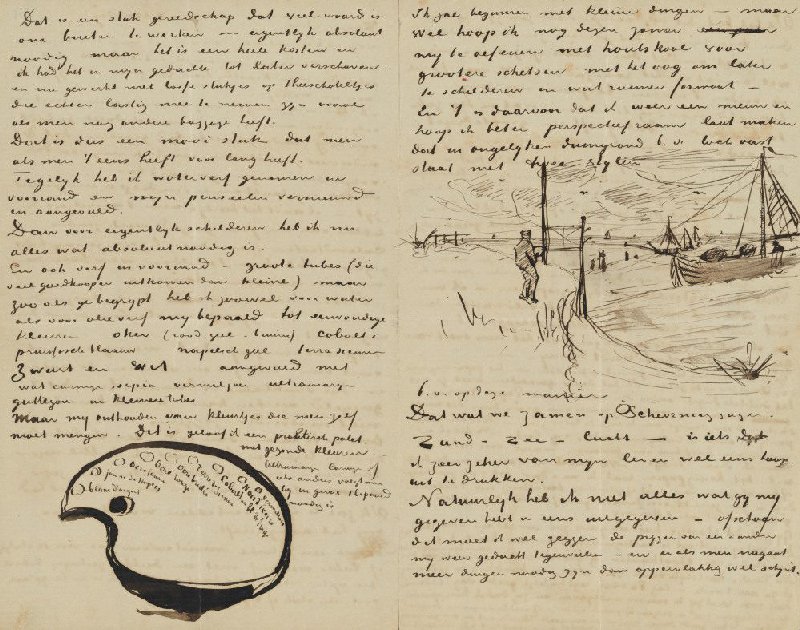 Dat is een stuk gereedschap dat veel waard is
om buiten te werken – eigentlijk absoluut
noodig maar het is een heele kosten en
ik had het in mijn gedachte tot laatst verschoven
en me gered met losse stukjes op theeschoteltjes
die echter lastig mee te nemen zijn vooral
als men nog andere bagage heeft.
Dat is dus een mooi stuk dat men
als men 't eens heeft voor lang heeft.
Tegelijk heb ik waterverf genomen in
voorraad en mijn penseelen vernieuwd
en aangevuld.
Dan voor eigentlijk schilderen heb ik nu
alles wat absoluut noodig is.
En ook verf in voorraad – groote tubes (die
veel goedkooper uitkomen dan kleine) maar
zoo als ge begrypt heb ik zoowel voor water
als voor olieverf my bepaald tot eenvoudige
kleuren oker (rood geel bruin) Cobalt &
pruissisch blaauw napelsch geel terra sienna
Zwart en Wit aangevuld met
wat carmijn sepia vermiljoen ultramarijn
guttegom in kleinere tubes
Maar my onthouden van kleurtjes die men zelf
moet mengen. Dit is geloof ik een praktiesch palet
met gezonde kleuren
ultramarijn carmijn of
iets anders voegt men
by in geval 't bepaald
noodig is
Ik zal beginnen met kleine dingen – maar
wel hoop ik nog dezen zomer
my te oefenen met houtskool voor
grootere schetsen met het oog om later
te schilderen in wat ruimer formaat –
En 't is daarom dat ik weer een nieuw en
hoop ik beter perspectiefraam laat maken
dat in ongelyken duingrond b.v. ook vast
staat met twee stylen
b.v. op deze manier
Dat wat we zamen op Scheveningen zagen.
Zand – Zee – lucht – is iets dat
ik zeer zeker van mijn leven wel eens hoop
uit te drukken.
Natuurlijk heb ik niet alles wat gy my
gegeven hebt in eens uitgegeven – ofschoon
dit moet ik wel zeggen de pryzen van een &amp; ander
my weer gedacht tegenvielen – en er als men nagaat
meer dingen noodig zyn dan oppervlakkig wel schynt.